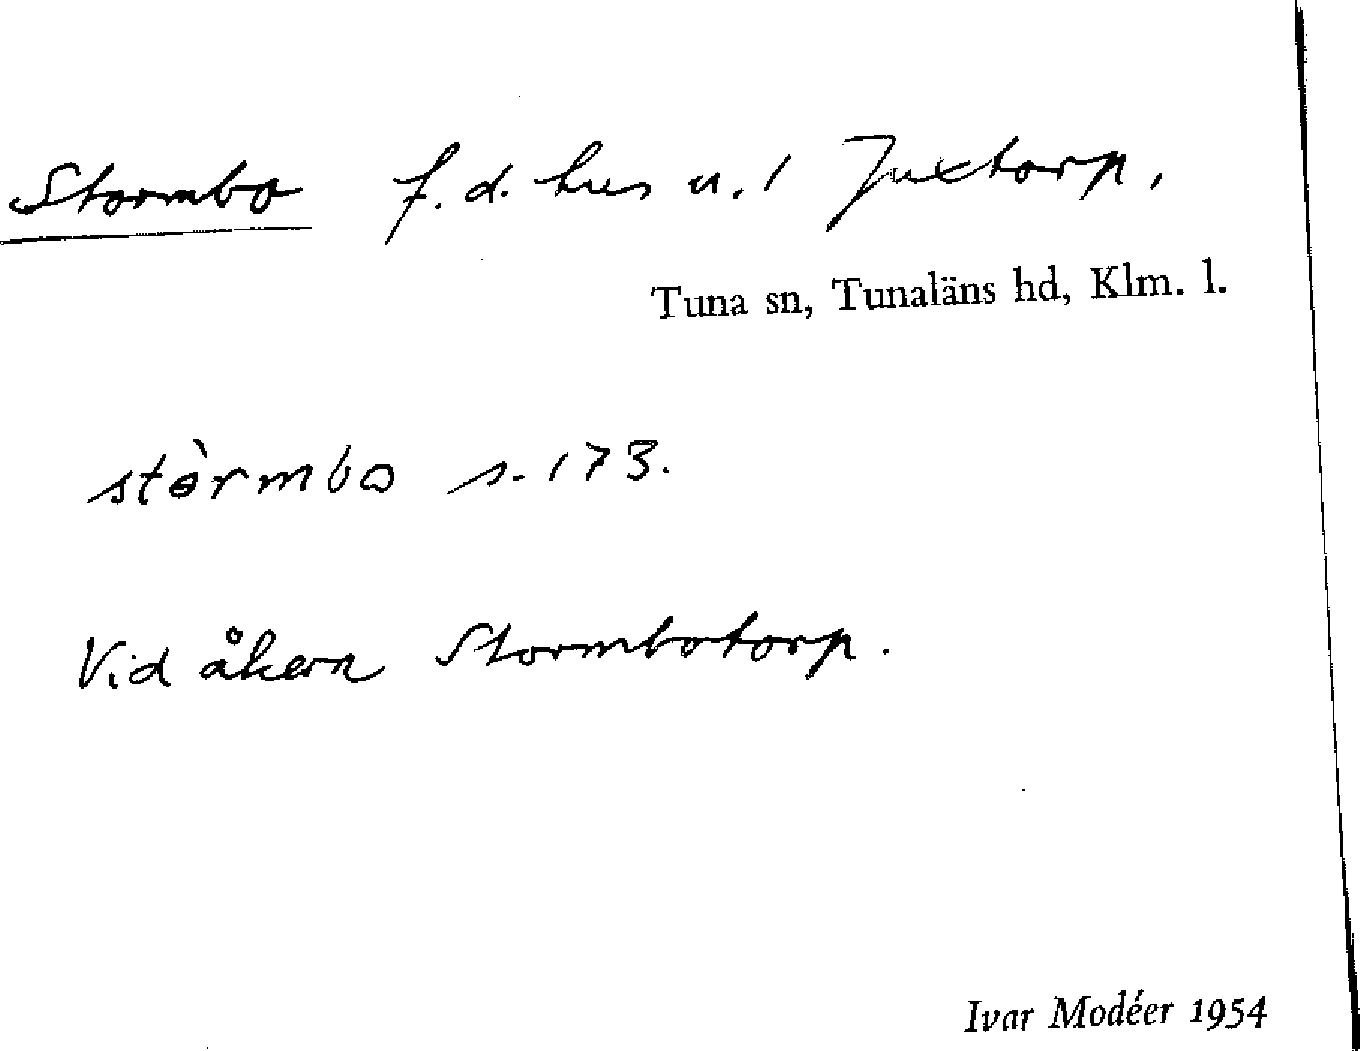 Stormbo f.d. hus u. 1 Juxtorp,
Tuna sn, Tunaläns hd, Klm. l.
stòrmbo s. 173.
Vid åkern Stormbotorp.
Ivar Modéer 1954